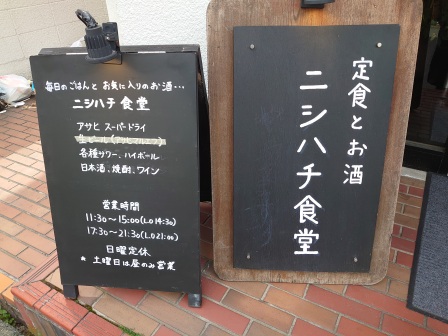 毎日のごはんと お気に入りのお酒...
ニシハチ食堂
アサヒ スーパードライ
生ビール(アサヒマルエフ)
各種サワー、ハイボール
日本酒、焼酎、ワイン
営業時間
11:30〜15:00(L.O 14:30)
17:30〜21:30(L.O 21:00)
日曜定休
* 土曜日は昼のみ営業
定食とお酒
ニシハチ食堂